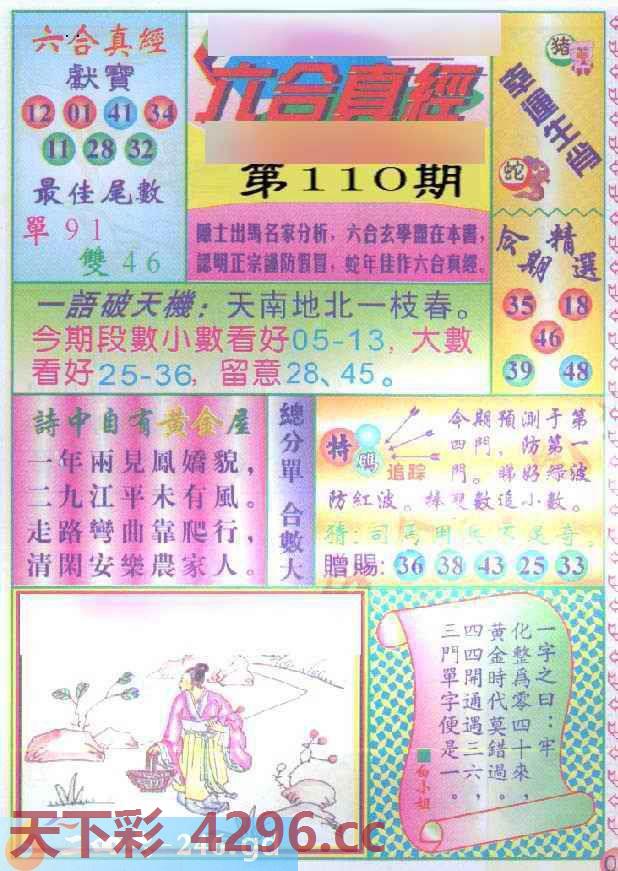 六合真經
獻寶
12 01 41 34
11 28 32
最佳尾數
單91
雙46
六合真經
第110期
隱士出馬名家分析，六合玄學盡在本書，
認明正宗謹防假冒，蛇年佳作六合真經。
豬
蛇
今期精選
35 18
46
39 48
一語破天機：天南地北一枝春。
今期段數小數看好05-13，大數
看好25-36，留意28、45。
詩中自有黃金屋
一年兩見鳳嬌貌，
二九江平未有風。
走路彎曲靠爬行，
清閑安樂農家人。
總分單 合數大
特碼
追踪
今期預測于第
四門，防第一
門。睇好綠波
防紅波。棒現數追小數。
猜：司馬用兵不足奇。
贈賜：36 38 43 25 33
一字之曰：牢
化整為零四十來，
黃金時代莫錯過。
四四開通遇三六，
三門單字便是一。
白小姐
天下彩 4296.cc